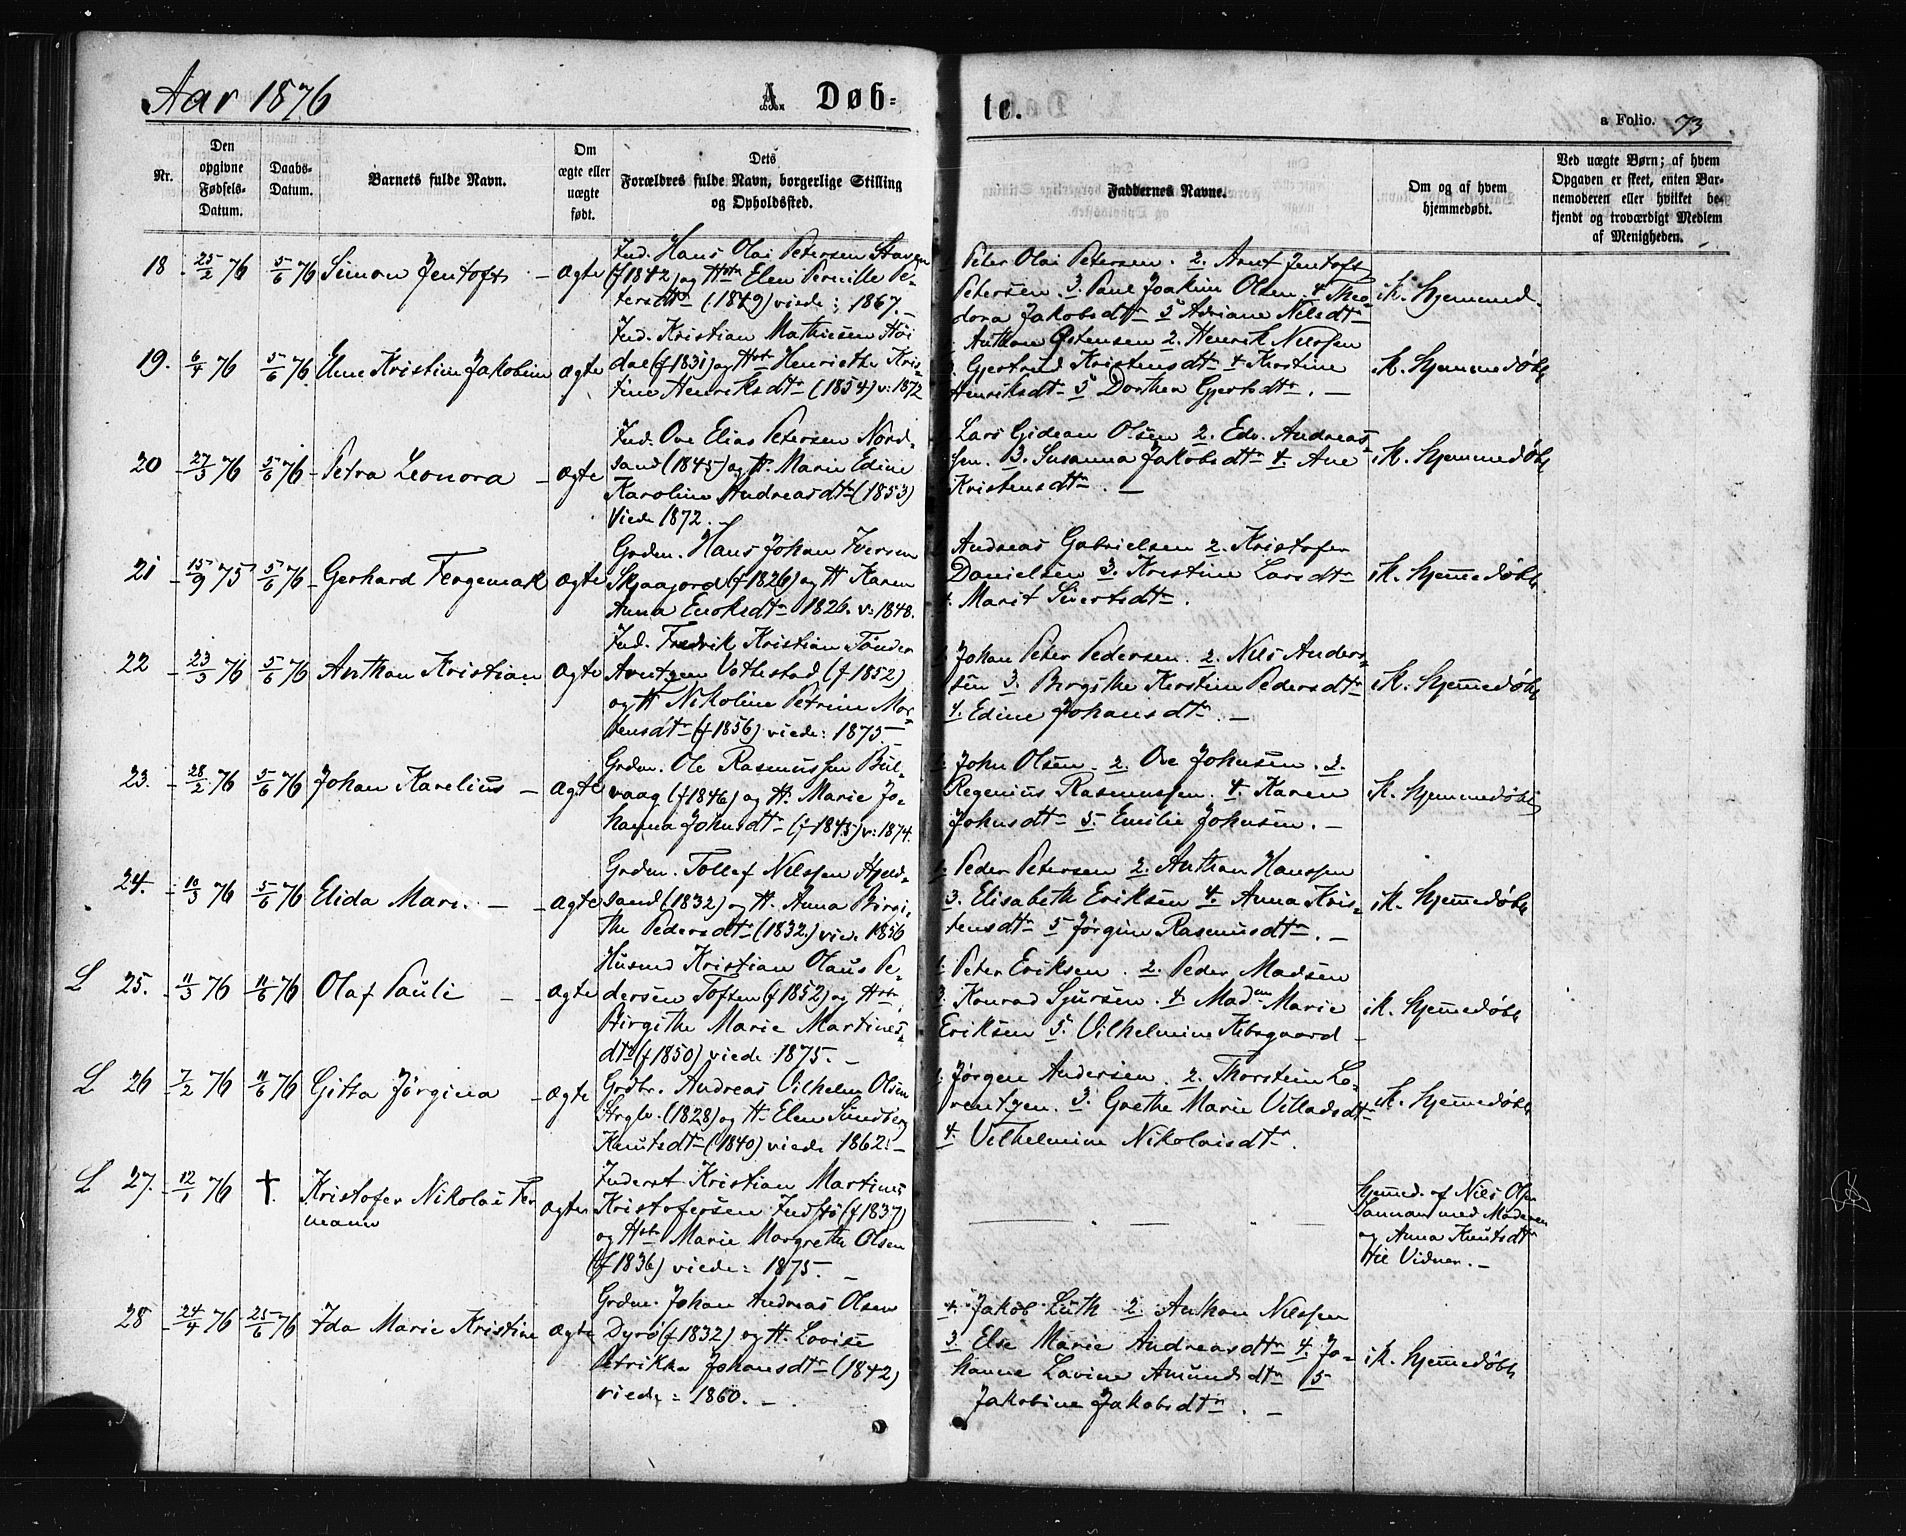 Aar 1876
A. Døb-
te.
a Folio. 73
Nr.
Den
opgivne
Fødsels-
Datum.
Daabs-
Datum.
Barnets fulde Navn.
Om
ægte eller
uægte
født.
Dets
Forældres fulde Navn, borgerlige Stilling
og Opholdssted.
Faddernes Navne.
Om og af hvem
hjemmedøbt.
Ved uægte Børn; af hvem
Opgaven er skeet, enten Bar-
nemoderen eller hvilket be-
kjendt og troværdigt Medlem
af Menigheden.
18 25/2 76 5/6 76 Simon Jentoft - ægte
Ind. Hans Olai Petersen
(f 1842) og Hstr Elen Pernille Pe-
tersdtr (1849) viede: 1867. -
Peter Olai Petersen. 2. Arnt Jentoft
Petersen. 3. Paul Joakim Olsen. 4 Theo-
dora Jakobsdtr 5 Adriane Nilsdtr
ik. hjemmed.
19. 6/4 76 5/6 76 Elene Kristine Jakobine ægte
Ind. Kristian Mathiesen Høi
dal (f 1831) og Hstr Henriethe Kris-
tine Henriksdtr (1854) v: 1872
Anthon Østensen 2. Henrik Nilssen
Gjertrud Kristensdtr 4 Kirstine
Henriksdtr 5 Dorthea Gjertsdtr. -
ik. hjemmedøbt
20 27/3 76 5/6 76 - Petra Leonora - ægte
Ind. Ove Elias Petersen Nord-
sand (1845) og H. Marie Edine
Karoline Andreasdtr (1853)
viede 1872. -
Lars Gidean Olsen 2. Edv. Andreas-
sen. 3. Susanna Jakobsdtr 4. Ane
Kristensdtr. -
ik. hjemmedøbt
21 - 15/9 75 5/6 76 - Gerhard Fergemark ægte
Grdm. Hans Johan Iversen
Skjaajord (f 1826) og H Karen
Anna Enoksdtr 1826. v: 1848.
Andreas Gabrielsen 2. Kristofer
Danielsen 3. Kristine Larsdtr
4. Marit Sivertsdtr.
ik. hjemmedøbt
22 - 23/3 76 5/6 76 Anthon Kristian ægte
Ind. Fredrik Kristian Tønder
Arentzen Vothestad (f 1852)
og H Nikoline Petrine Mor-
tensdtr (f 1856) viede: 1875. -
Johan Peter Pedersen. 2. Nils Anders-
sen 3. Birgithe Kerstine Pedersdtr
4. Edine Johansdtr. -
ik. hjemmedøbt
23. - 28/2 76 5/6 76 Johan Karelius - ægte
Grdm. Ole Rasmussen Bul-
vaag (f 1846) og H. Marie Jo-
hanna Johnsdtr (f 1845) v: 1874.
1. John Olsen. 2. Ove Johnsen. 3.
Regenius Rasmussen. 4. Karen
Johnsdtr 5. Emilie Johnsen. -
ik. hjemmedøbt
24. - 10/3 76 5/6 76 Elida Mari. - ægte
Grdm. Tollef Nilssen
sand (1832) og H. Anna Birgi-
the Pedersdtr (1832) viede 1856
1. Peder Petersen 2. Anthon Hanssen
3. Elisabeth Eriksen 4. Anna Kris-
tensdtr 5 Jørgine Rasmusdtr. -
ik. hjemmedøbt
L 25. 11/3 76 11/6 76 Olaf Pauli - ægte
Husmd Kristian Olaus Pe-
dersen Toften (f 1852) og Hstr
Birgithe Marie Martines-
dtr (f 1850) viede 1875. -
1. Peter Eriksen. 2. Peder Madsen
3. Konrad Sjursen. 4. Madm Marie
Eriksen 5. Vilhelmine Kibsgaard -
ik. hjemmedøbt
L 26 7/2 76 11/6 76 Gitta Jørgina - ægte
Grdbr. Andreas Vilhelm Olsen
(1828) og H. Elen Sundberg
Knutsdtr (1840) viede 1862. -
1. Jørgen Andersen. 2. Thorstein Lo-
rentzen. 3. Grethe Marie Villadsdtr
4. Vilhelmine Nikolaisdtr.
ik. hjemmedøbt
L 27. 12/1 76 †. Kristofer Nikolai Fer
mann ægte
Inderst Kristian Martines
Kristofersen Indstø (f 1837)
og Hstr Marie Margrethe Olsen
(f 1836) viede: 1875. -
Hjemmed. af Nils Olsen
med Moderen
og Anna Knutsdtr
Vidner. -
28 - 24/4 76 25/6 76 Ida Marie Kristine ægte
Grdm. Johan Andreas Olsen
Dyrø (f 1832) og H. Lovise
Petrikka Johansdtr (1842)
viede: 1860. -
1 Jakob Luth 2 Anthon Nilssen
3 Else Marie Andreasdtr 4. Jo-
hanne Lavine Amundsdtr 5
Jakobine Jakobsdtr. -
ik. hjemmedøbt